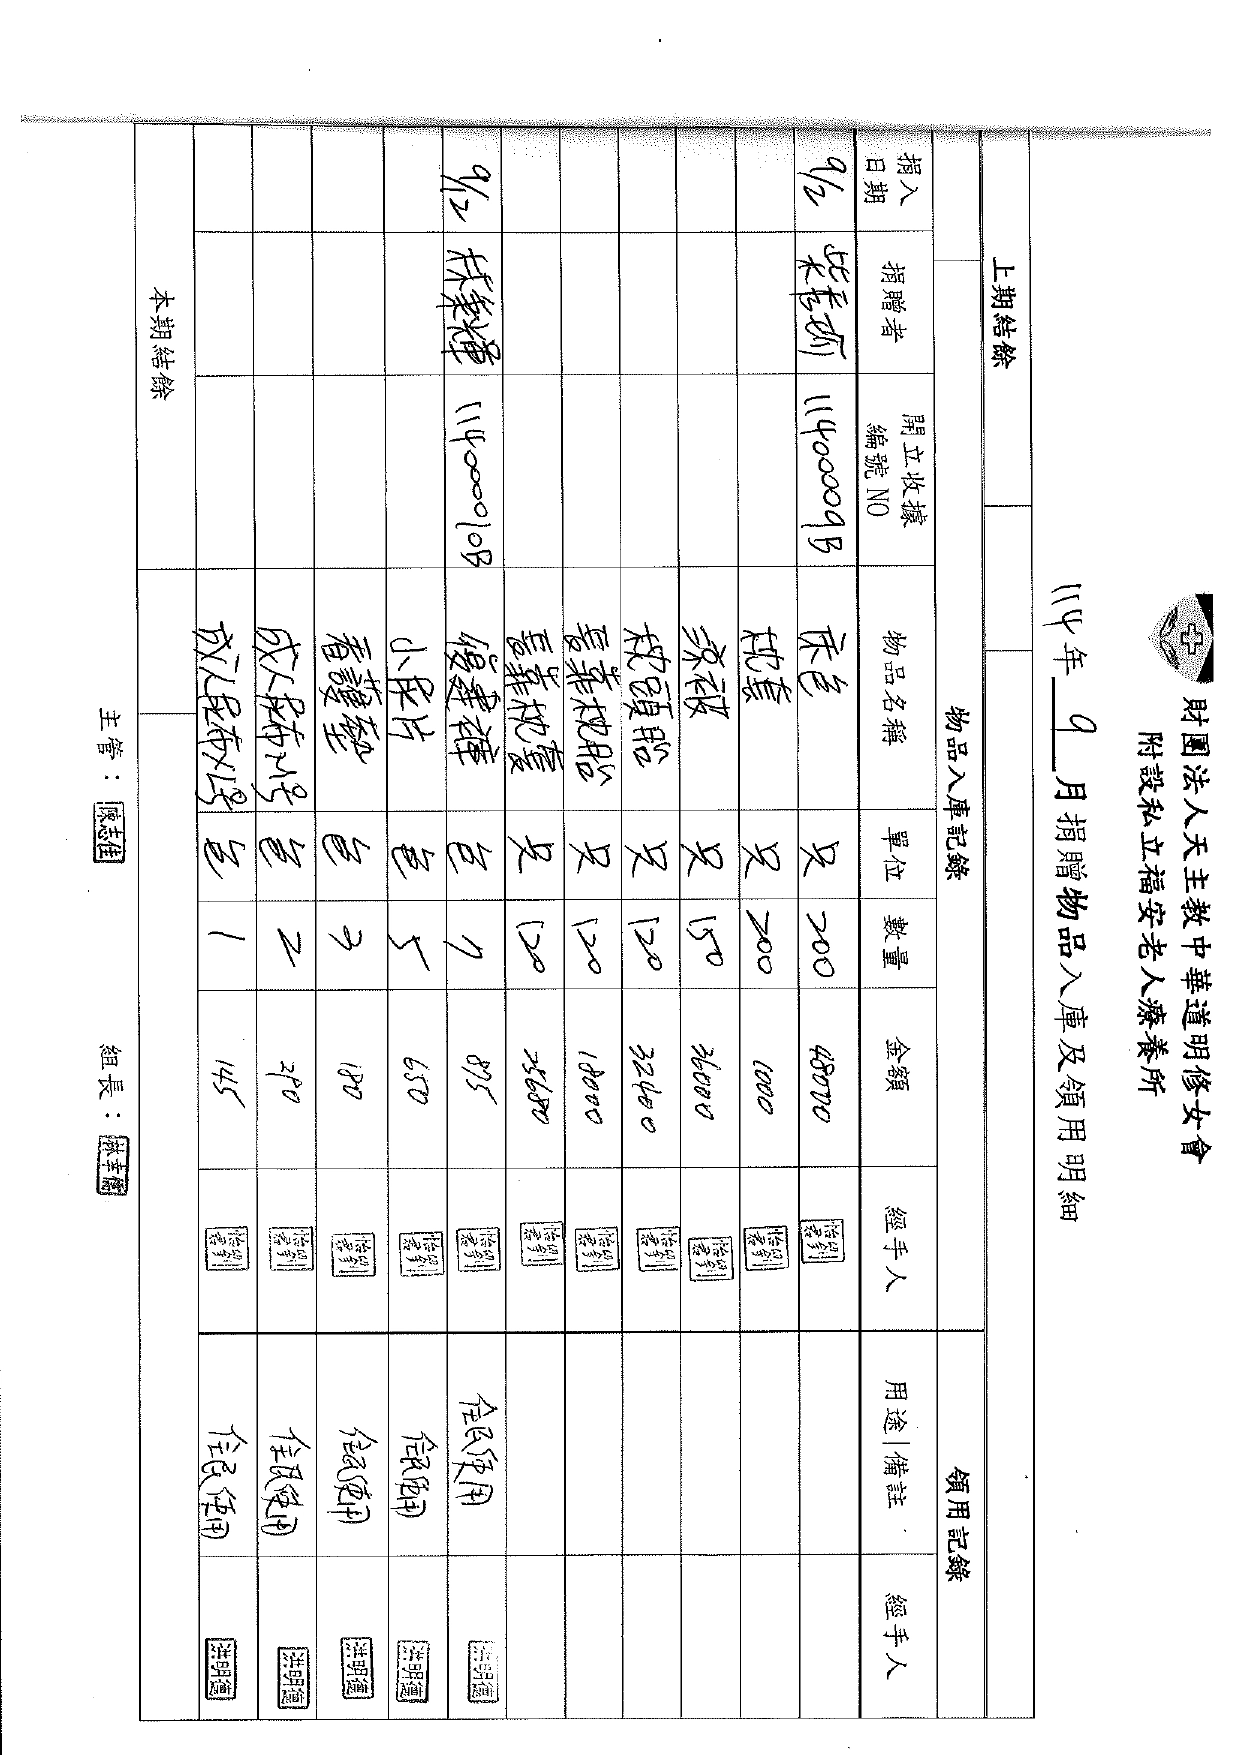 財團法人天主教中華道明修女會
附設私立福安老人療養所
114年 9 月捐贈物品入庫及領用明細
上期結餘
物品入庫記錄 領用記錄
捐入日期 捐贈者 開立收據編號NO 物品名稱 單位 數量 金額 經手人 用途/備註 經手人
9/2 11400009B 床包 只 200 48000
枕套 只 200 1000
涼被 只 150 36000
枕頭胎 只 120 32400
靠枕胎 只 120 18000
靠枕套 只 120 25680
9/12 11400010B 復健褲 包 7 875 住民使用 洪明德
小尿片 包 5 650 住民使用 洪明德
看護墊 包 3 180 住民使用 洪明德
成人尿布M號 包 2 290 住民使用 洪明德
成人尿布XL號 包 1 145 住民使用 洪明德
本期結餘
主管： 陳志佳 組長： 林幸儒